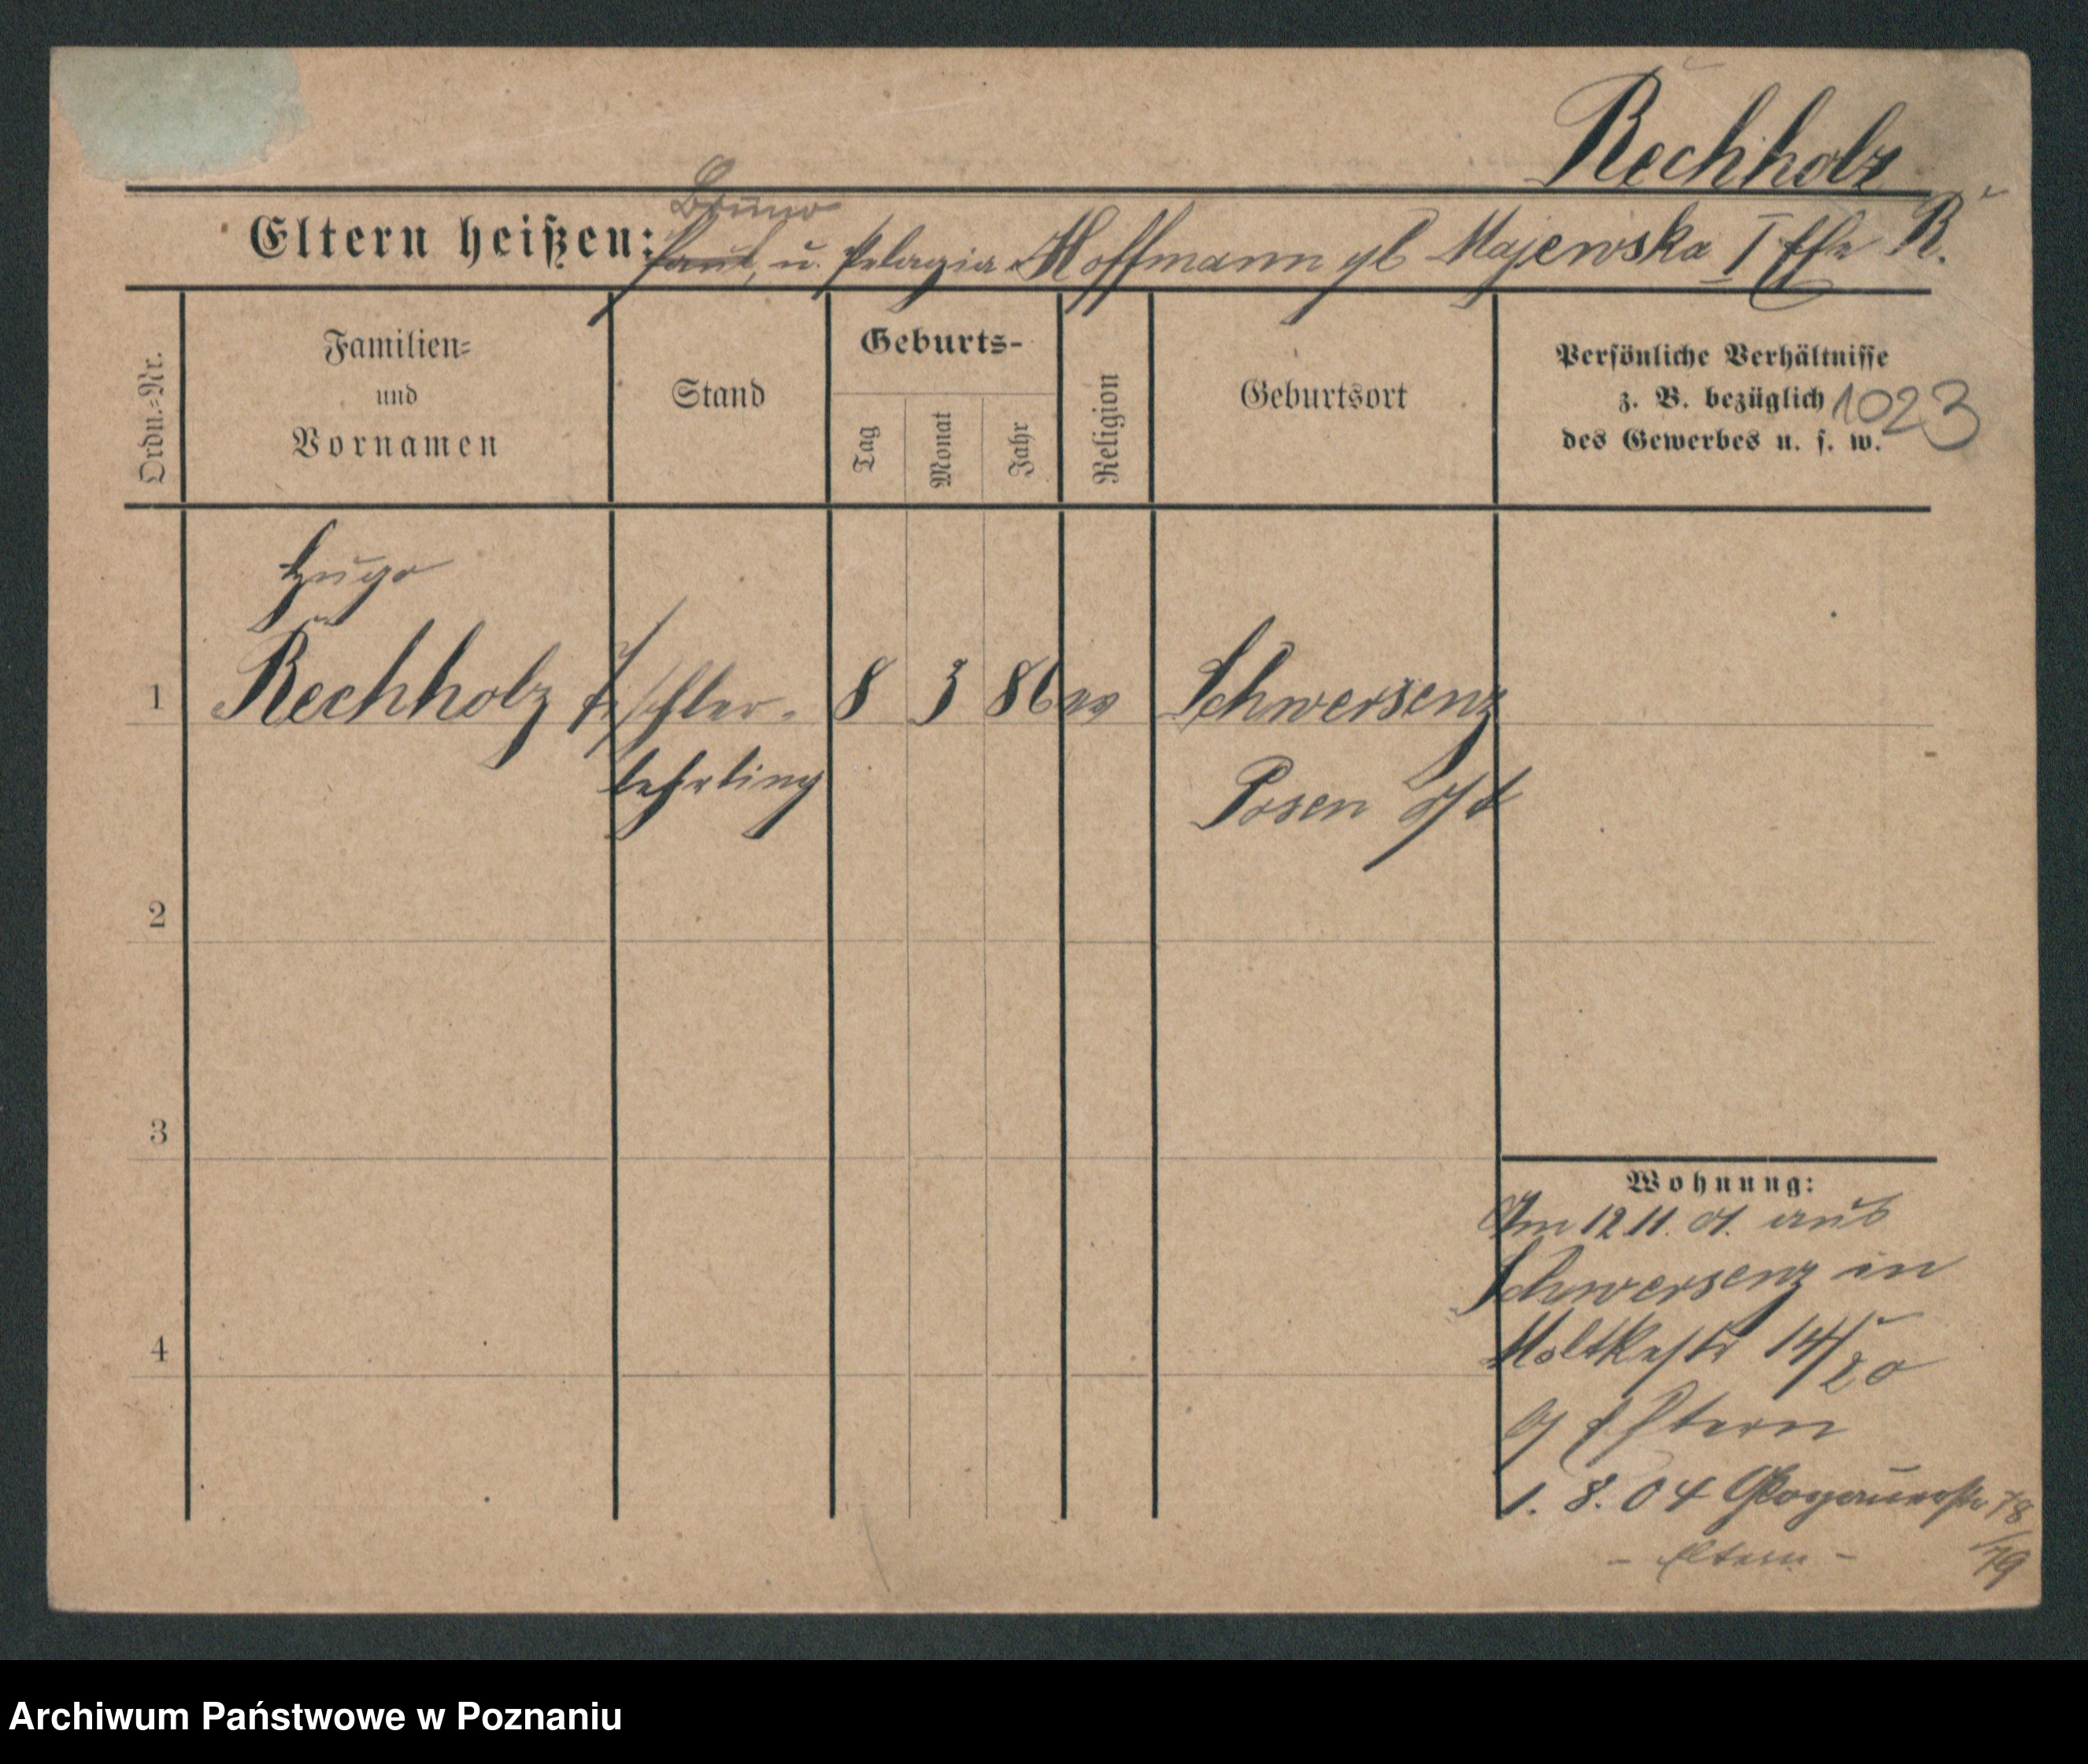 Rechholz
Bruno
Eltern heißen: Paul, u. Pelagia Hoffmann gb Majewska I Ehe R.
Ordn.=Nr.
Familien=
und
Vornamen
Stand
Geburts-
Tag
Monat
Jahr
Religion
Geburtsort
Persönliche Verhältnisse
z. B. bezüglich
des Gewerbes u. s. w.
1023
Hugo
1 Rechholz Tischler- 8 3 86 ev Schwersenz
lehrling Posen O/
2
3
4
Wohnung:
Am 12 11. 01. aus
Schwersenz in
Moltkestr 14/20
b/ Eltern
1. 8. 04 Glogauerstr 78
/79
- Eltern -
Archiwum Państwowe w Poznaniu